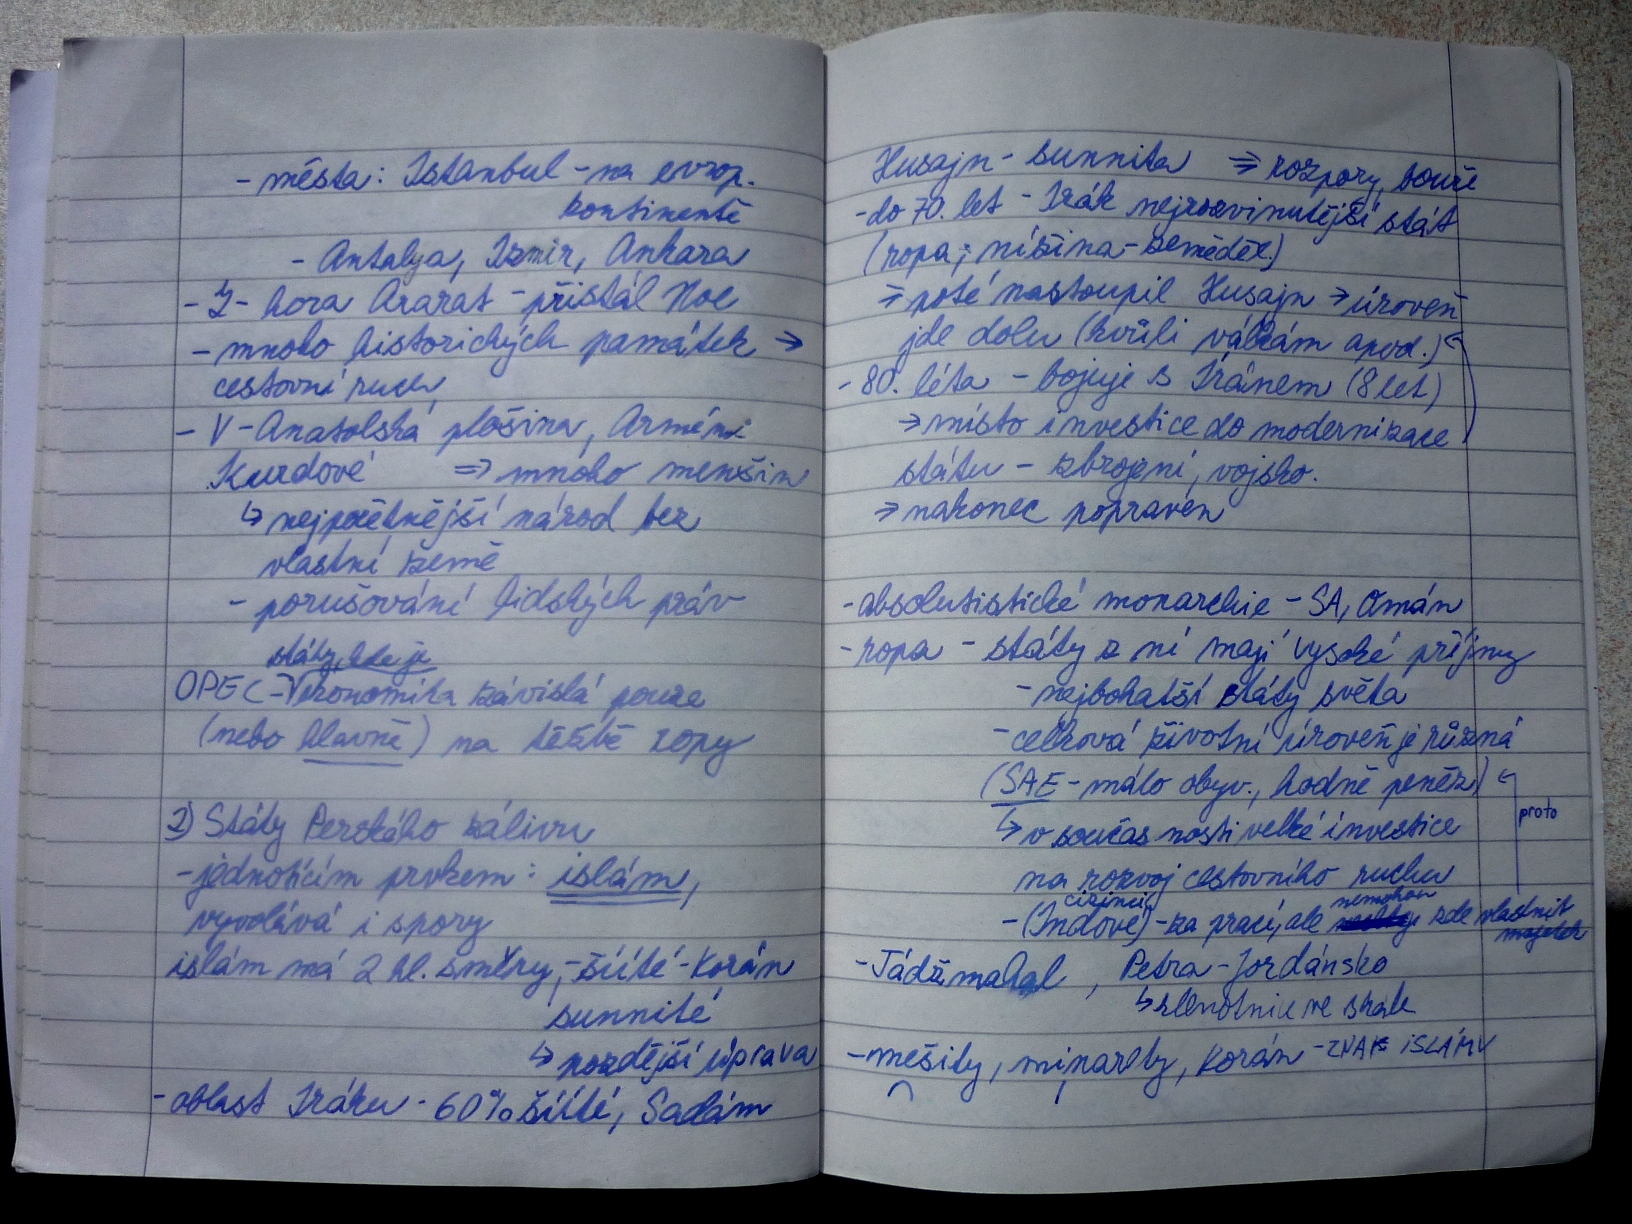 - města: Istanbul - na evrop.
kontinentě
- Antalya, Izmir, Ankara
- hora Ararat - přistál Noe
- mnoho historických památek →
cestovní ruch
- V - Anatolská plošina, Arméni
Kurdové ⇒ mnoho menšin
↳ nejpočetnější národ bez
vlastní země
- porušování lidských práv
státy, kde je
OPEC - ekonomika závislá pouze
(nebo hlavně) na těžbě ropy
2) Státy Perského zálivu
- jednotícím prvkem: islám,
vyvolává i spory
islám má 2 hl. směry, - šíité - Korán
sunnité
↳ pozdější úprava
- oblast Iráku - 60% šíité, Sadám
Husajn - sunnita ⇒ rozpory, bouře
- do 70. let - Irák nejrozvinutější stát
(ropa; nížina - zeměděl.)
⇒ poté nastoupil Husajn → úroveň
jde dolu (kvůli válkám apod.)
- 80. léta - bojuje s Iránem (8 let)
→ místo investice do modernizace
státu - zbrojení, vojsko.
→ nakonec popraven
- absolutistické monarchie - SA, Omán
- ropa - státy z ní mají vysoké příjmy
- nejbohatší státy světa
- celková životní úroveň je různá
(SAE - málo obyv., hodně peněz)
proto
↳ v současnosti velké investice
na rozvoj cestovního ruchu
cizinci nemohou
- (Indové) - za prací, ale zde vlastnit
majetek
- Tádžmahal, Petra - Jordánsko
↳ klenotnice ve skále
- mešity, minarety, Korán - ZNAK ISLÁMU